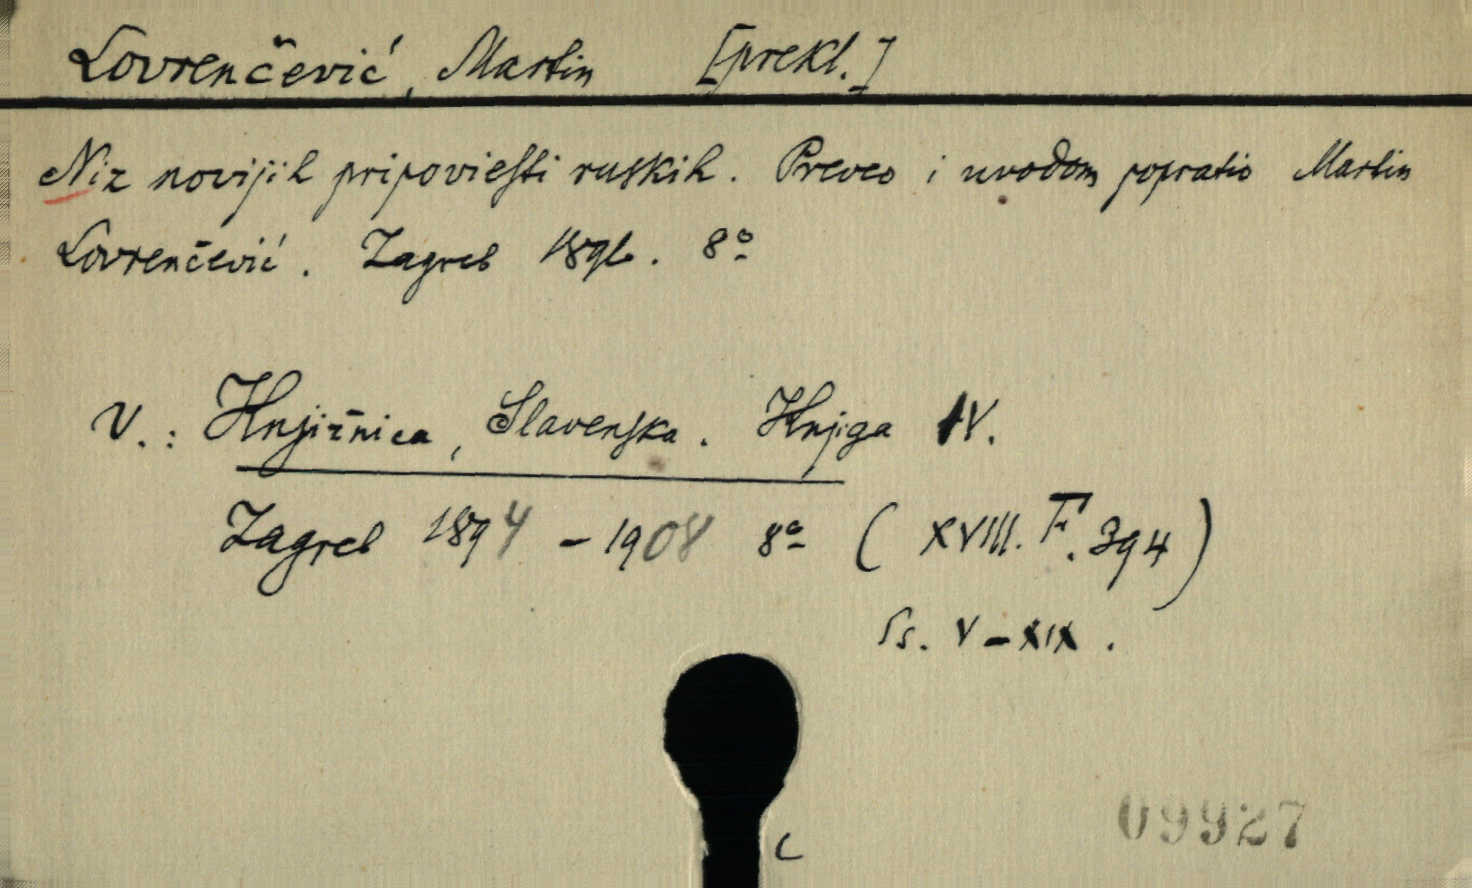 Lovrenčević, Martin [prekl.]
Niz novijih pripoviesti ruskih. Preveo i uvodom popratio Martin
Lovrenčević. Zagreb 1896. 8º
V.: Knjižnica, Slavenska. Knjiga IV.
Zagreb 1894 – 1908 8º ( XVIII. F. 394)
Ss. V – XIX.
C
09927